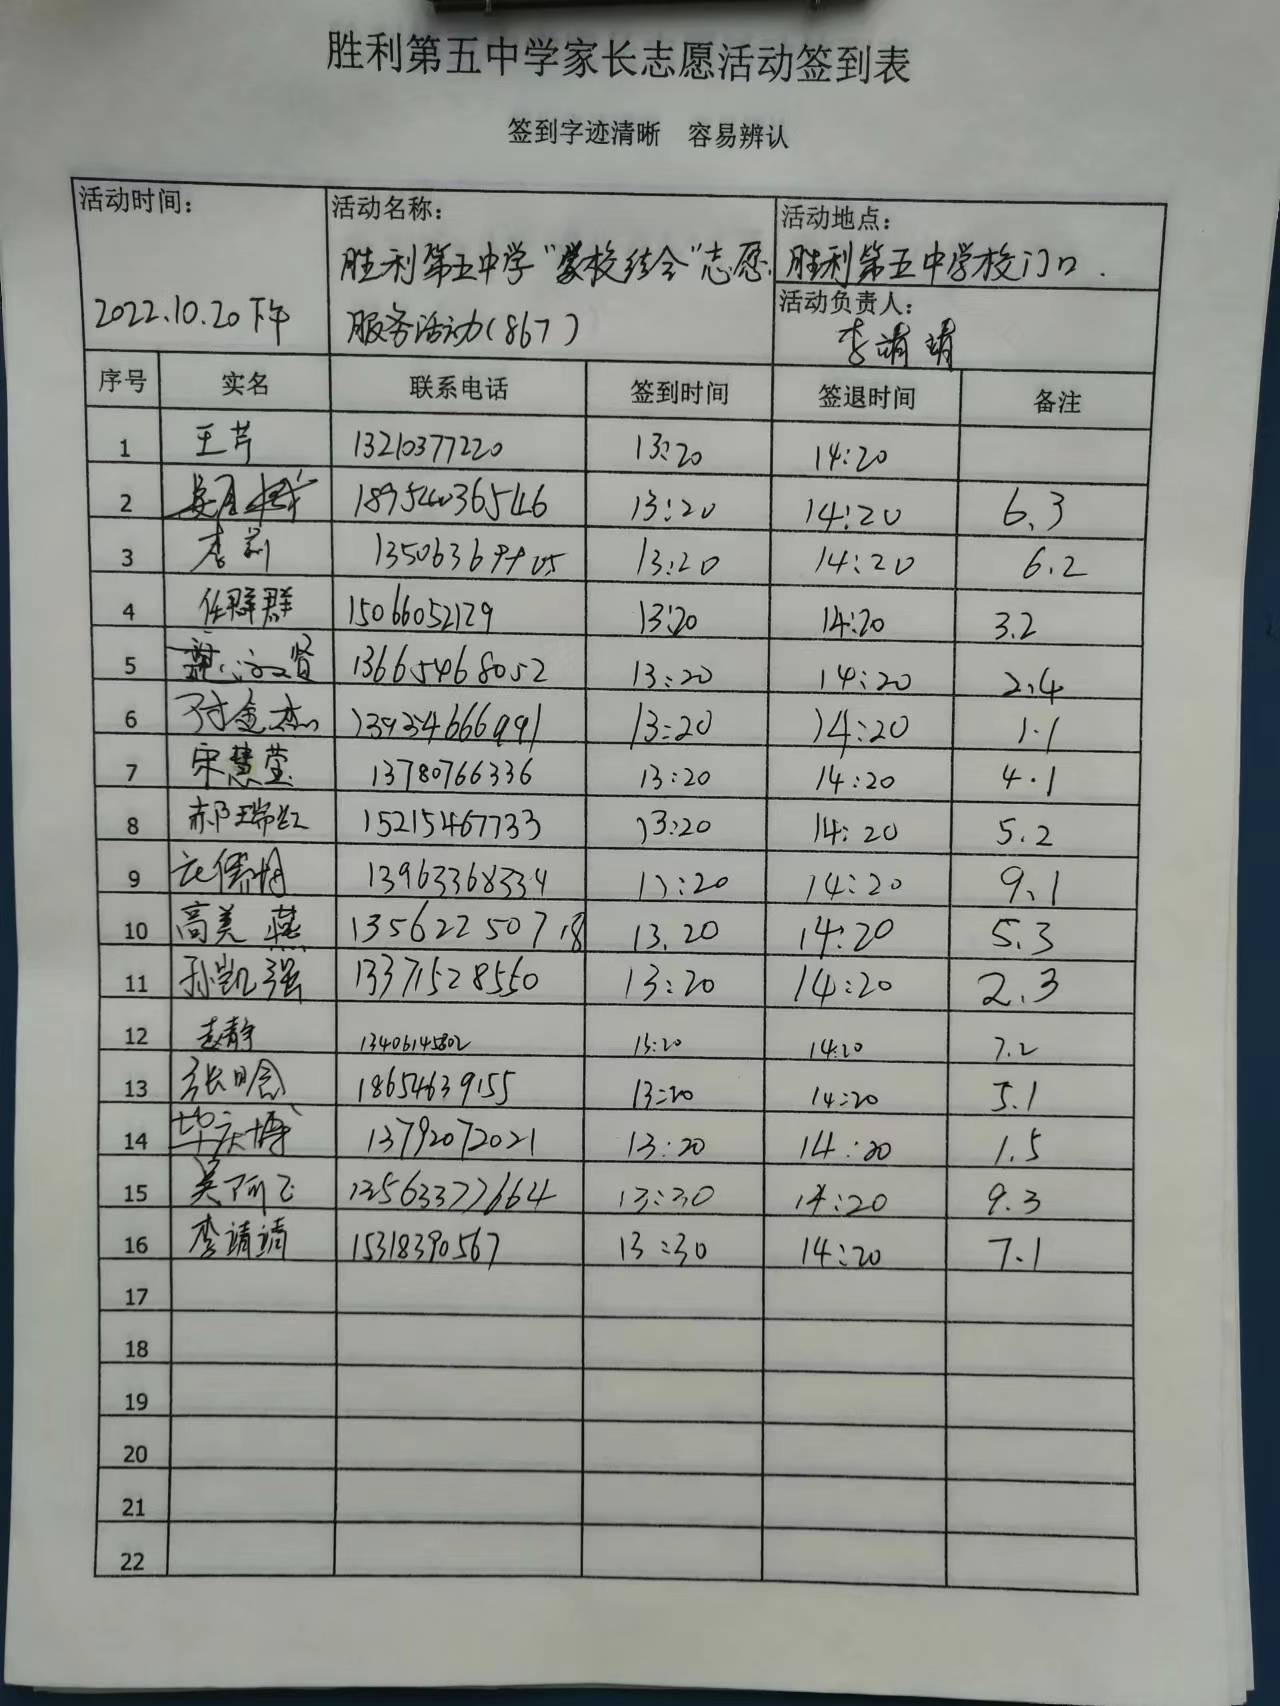 胜利第五中学家长志愿活动签到表
签到字迹清晰 容易辨认
活动时间: 活动名称: 活动地点:
胜利第五中学“家校结合”志愿 胜利第五中学校门口.
2022.10.20下午 服务活动(867) 活动负责人:
李靖靖
序号 实名 联系电话 签到时间 签退时间 备注
1 王芹 13210377220 13:20 14:20
2 18954036546 13:20 14:20 6.3
3 李莉 13:20 14:20 6.2
4 任群群 15066052129 13:20 14:20 3.2
5 13665468052 13:20 14:20 2.4
6 13:20 14:20 1.1
7 宋慧莹 13780766336 13:20 14:20 4.1
8 郝瑞红 15215467733 13:20 14:20 5.2
9 13963368334 13:20 14:20 9.1
10 高美燕 13562250718 13.20 14:20 5.3
11 孙凯强 13371528550 13:20 14:20 2.3
12 赵静 13406145802 13:20 14:20 7.2
13 张明念 18654639155 13:20 14:20 5.1
14 毕庆博 13792072021 13:20 14:20 1.5
15 吴阿飞 13563377664 13:30 14:20 9.3
16 李靖靖 15318390567 13:30 14:20 7.1
17
18
19
20
21
22